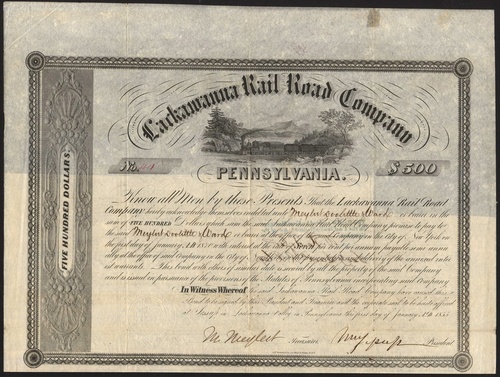 Lackawanna Rail Road Company
No. 1
PENNSYLVANIA.
$500
FIVE HUNDRED DOLLARS
Know all Men by these Presents That the Lackawanna Rail Road
Company hereby acknowledge themselves indebted unto Meylert Doolittle & Ward or bearer in the
sum of FIVE HUNDRED Dollars which sum the said Lackawanna Rail Road Company promise to pay to
the said Meylert Doolittle & Ward or at the office of the said Company in the City of New York on
the first day of January with interest at the rate of Seven per cent per annum
at the office of said Company in the City of of the annexed interest
warrants. This bond with others of similar date is secured by all the property of the said Company
and is issued in pursuance of the provisions of the Statutes of Pennsylvania incorporating said Company
In Witness Whereof the said Lackawanna Rail Road Company have caused this
Bond to be signed by their President and Treasurer and the corporate seal to be hereto affixed
at in Pennsylvania the first day of January A.D. 1855
M. Meylert Treasurer President